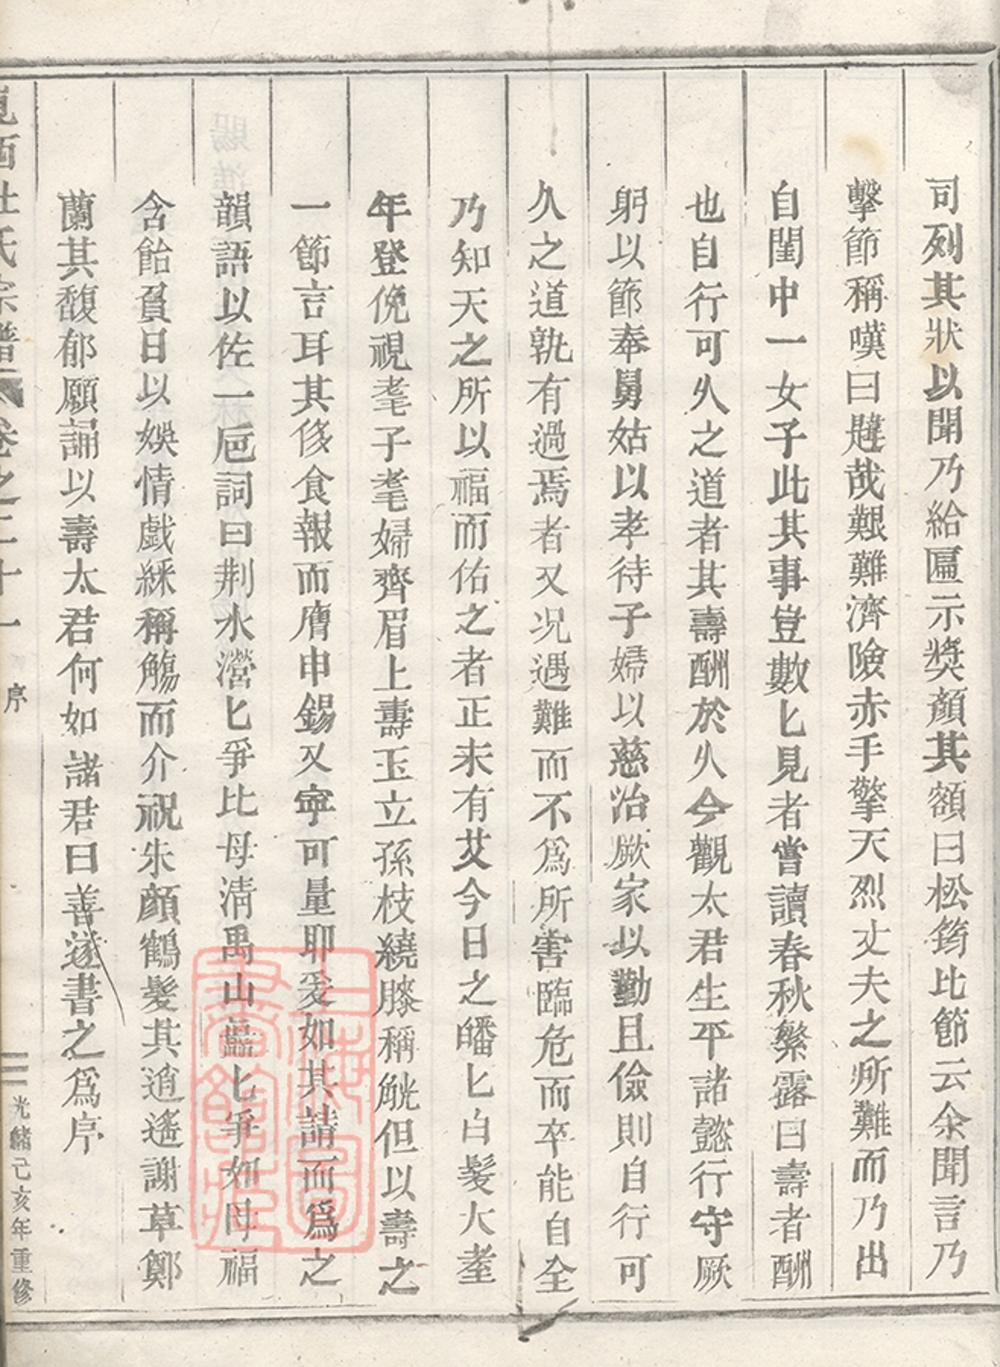 司列其狀以聞乃給匾示獎顏其額曰松筠比節云余聞言乃
擊節稱嘆曰韙哉艱難濟險赤手擎天烈丈夫之所難而乃出
自閨中一女子此其事豈數匕見者嘗讀春秋繁露曰壽者酬
也自行可久之道者其壽酬於久今觀太君生平諸懿行守厥
躬以節奉舅姑以孝待子婦以慈治厥家以勤且儉則自行可
久之道孰有過焉者又况遇難而不為所害臨危而卒能自全
乃知天之所以福而佑之者正未有艾今日之皤匕白髪大耋
年登俛視耄子耄婦齊眉上壽玉立孫枝繞膝稱觥但以壽之
一節言耳其後食報而膺申錫又寧可量耶爰如其請而為之
韻語以佐一卮詞曰荆水瀯匕爭比母清禺山矗匕爭如母福
含飴負日以娛情戲綵稱觴而介祝朱顏鶴髪其逍遙謝草鄭
蘭其馥郁願誦以壽太君何如諸君曰善遂書之為序
宗譜 卷之二十一 序
光緒己亥年重修
上海圖書館藏